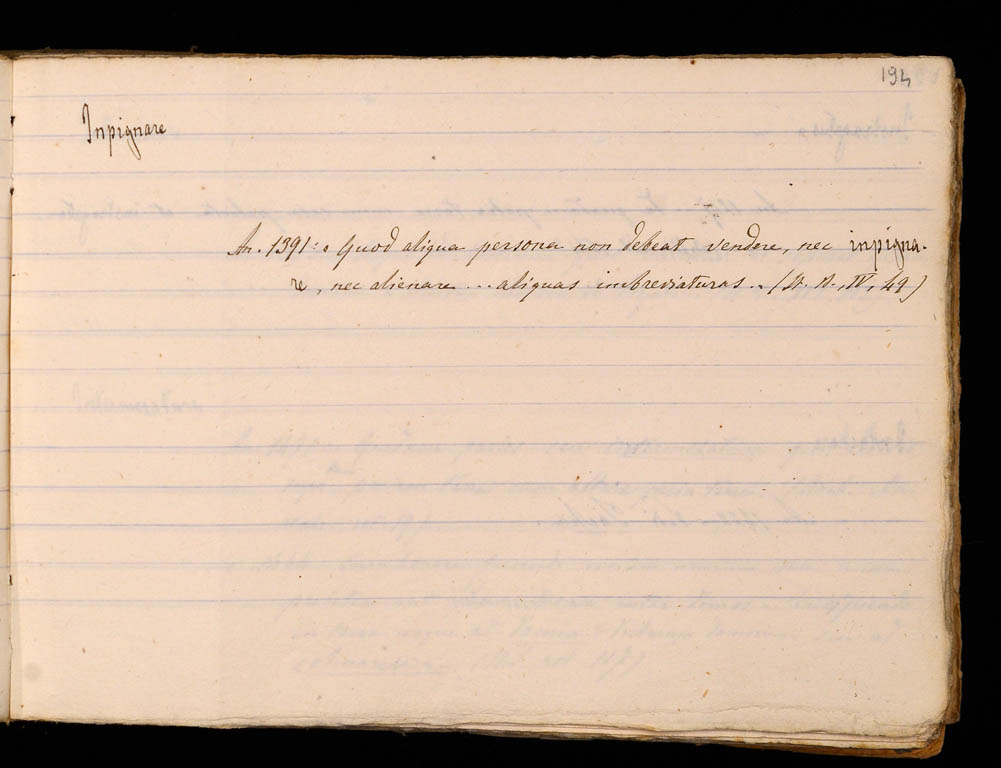 194
Inpignare
An. 1391: « Quod aliqua persona non debeat vendere, nec inpigna-
re, nec alienare ... aliquas imbreviaturas .. (St. A., IV, 49)